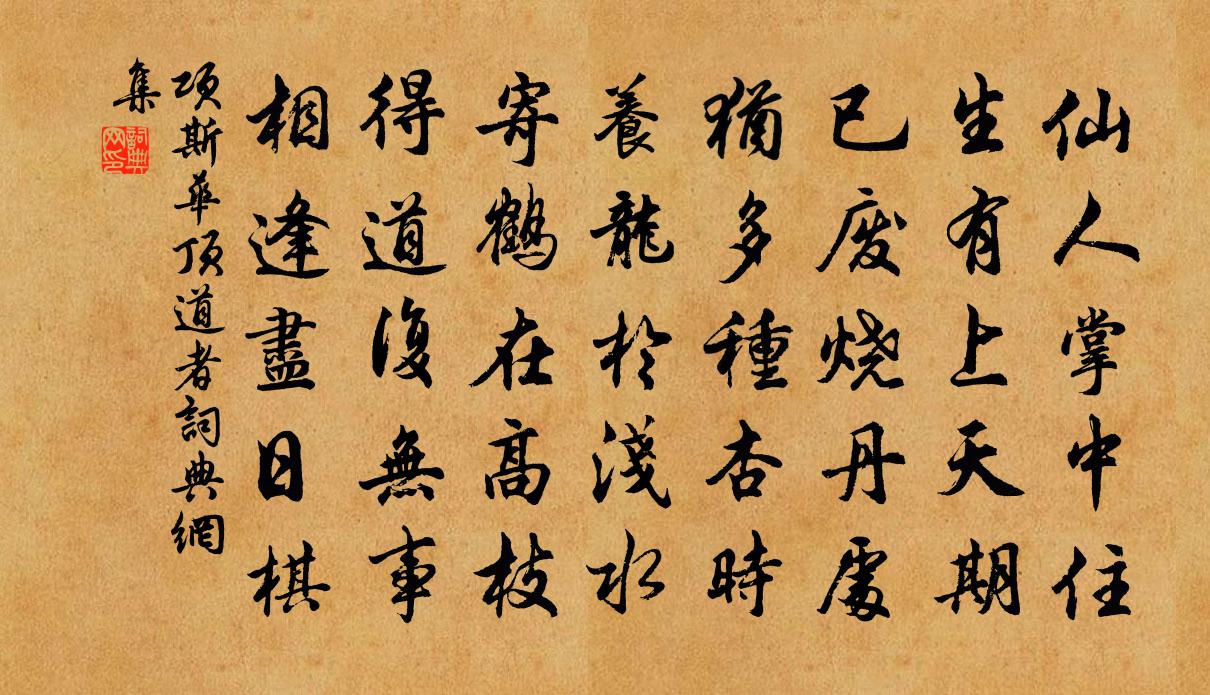 仙人掌中住
生有上天期
已废烧丹處
猶多種杏時
養龍於淺水
寄鶴在高枝
得道復無事
相逢盡日棋
項斯華頂道者詞典網
集
詞典
网印